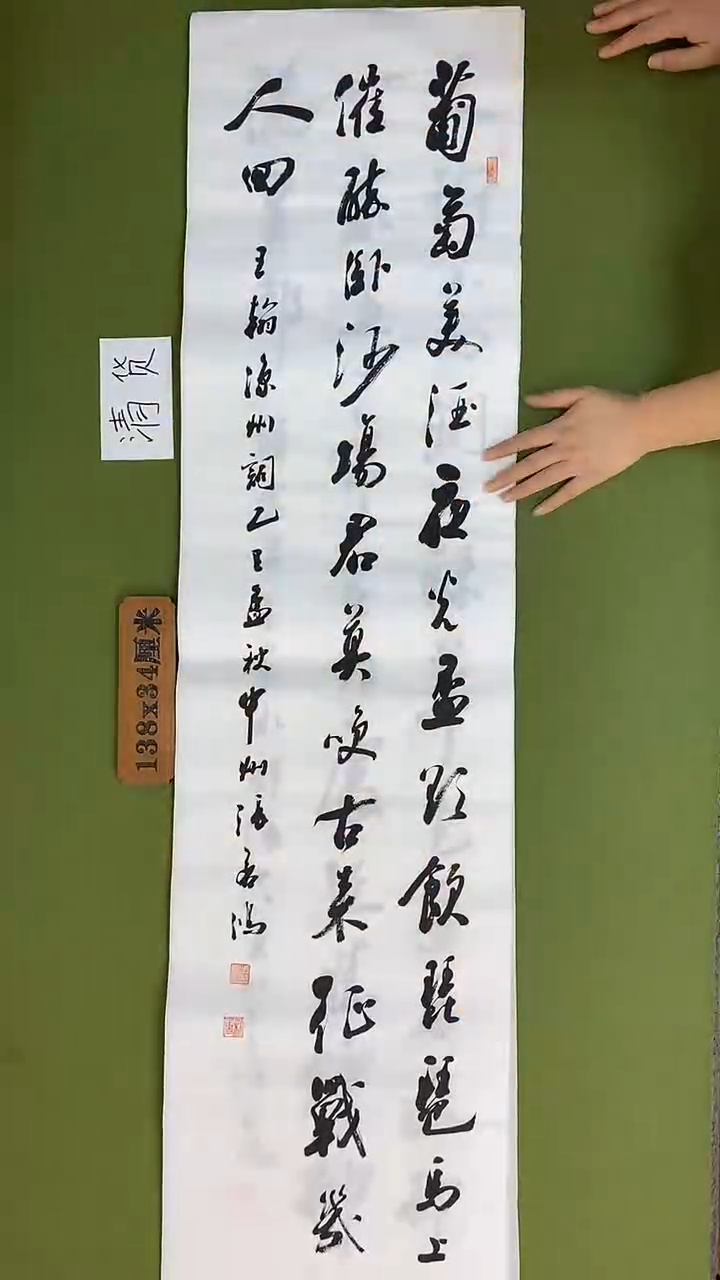 葡萄美酒夜光盃欲飲琵琶馬上
催醉卧沙場君莫咲古来征戰幾
人囬
王翰涼州詞乙巳孟秋中州張
清货
138x34厘米